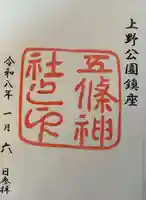 上野公園鎮座
五條神
社之印
令和八年一月六日参拝